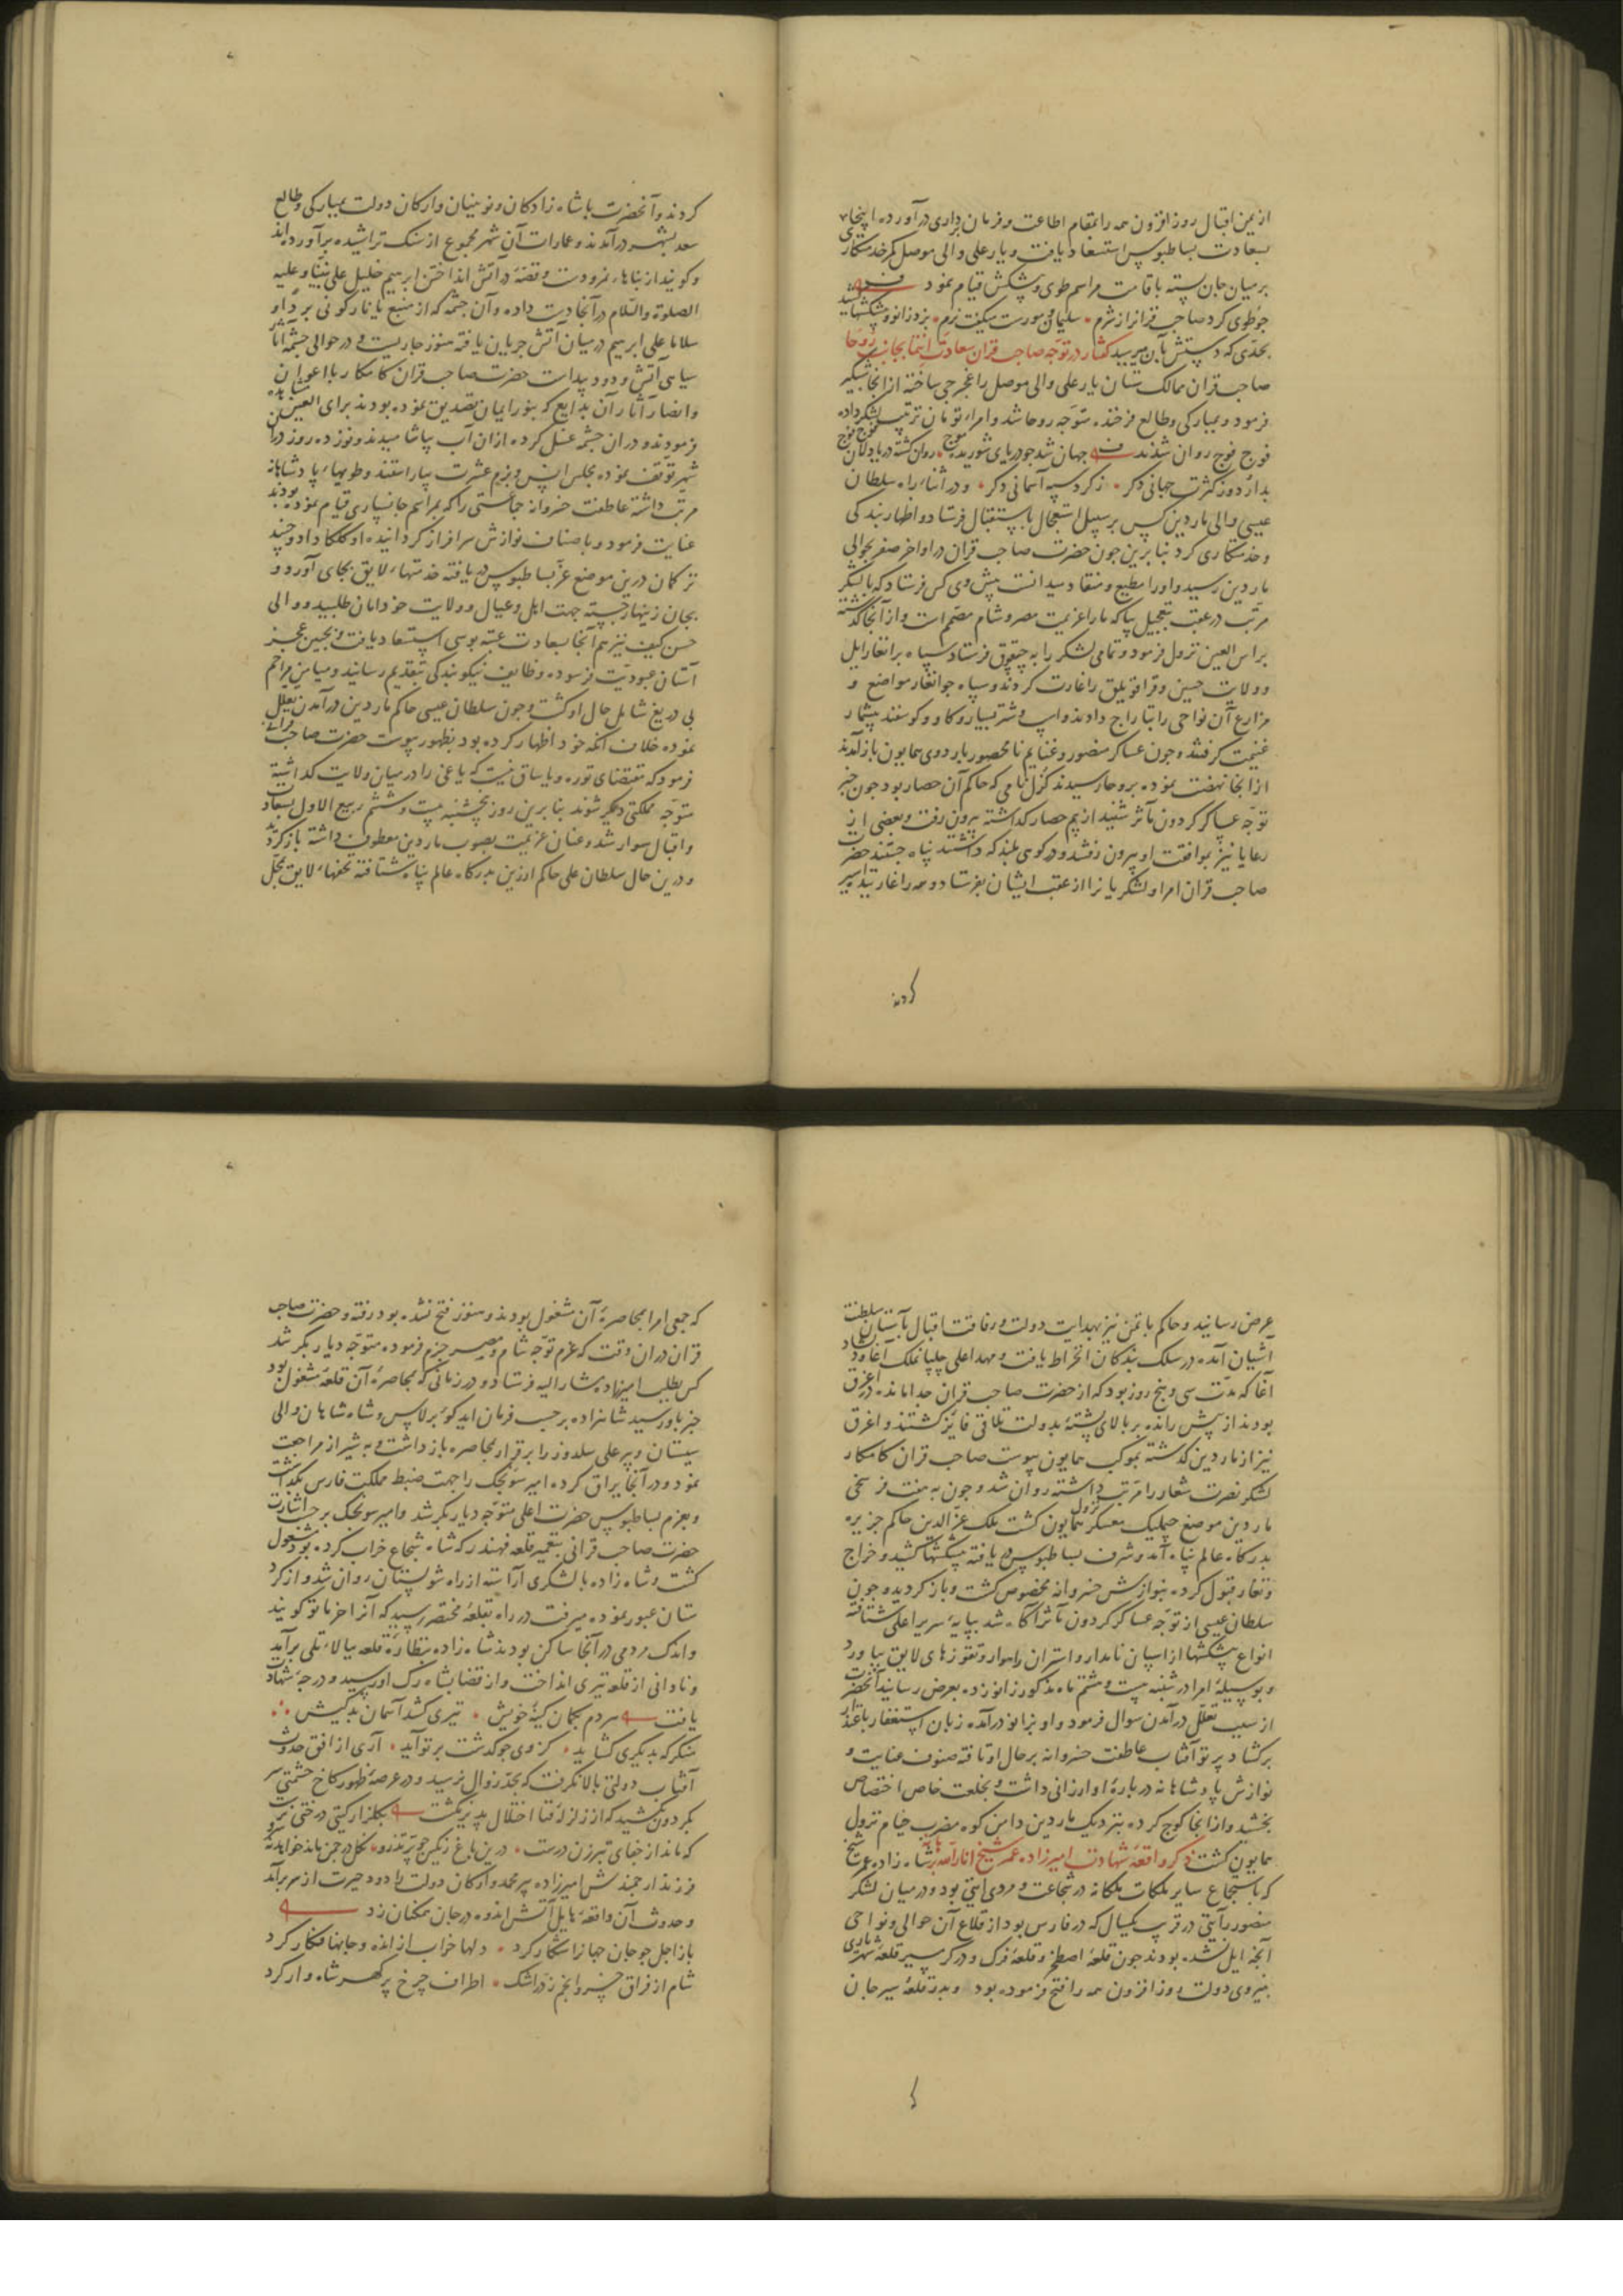 از یمن اقبال روز افزون همه را بمقام اطاعت و فرمان برداری درآورده اینجا
بسعادت بساطبوس استسعاد یافت و یار علی والی موصل کمر خدمتکاری
بر میان جان بسته باقامت مراسم طوی و پیشکش قیام نمود
چو طوی کرد صاحب قرانرا ز شرم سلیمان و مورست میگفت نرم بزد زانو و پیشکشها کشید
بحدی که دستش بآن میرسید گفتار در توجه صاحب قران سعادت انتما بجانب روحا
صاحب قران ممالک ستان یار علی والی موصل را غجرجی ساخته از آنجا شبگیر
فرمود و بمبارکی و طالع فرخنده متوجه روحا شد و امراء تومان ترتیب لشکر داده
فوج فوج روان شدند جهان شد چو دریای شوریده موج روان گشته دریادلان فوج فوج
بدار دوز کثرت جهانی دگر ز گرد سپه آسمانی دگر و در اثناء راه سلطان
عیسی والی ماردین کس بر سبیل استعجال باستقبال فرستاد و اظهار بندگی
و خدمتکاری کرد بنا برین چون حضرت صاحب قران در اواخر صفر بحوالی
ماردین رسید و او را مطیع و منقاد میدانست پیش وی کس فرستاد که با لشکر
مرتب در عقب بتعجیل بیا که ما را عزیمت مصر و شام مصمم است و از آنجا گذشته
براس العین نزول فرمود و تمامی لشکر را به چپقون فرستاد سپاه برانغار ایل
و ولایت حسین و قراقویلق را غارت کردند و سپاه جوانغار مواضع و
مزارع آن نواحی را بتاراج دادند و اسپ و شتر بسیار و گاو و گوسفند بیشمار
غنیمت گرفتند و چون عساکر منصور و غنایم نامحصور باردوی همایون باز آمدند
از آنجا نهضت نموده بروحا رسیدند کزل نامی که حاکم آن حصار بود چون خبر
توجه عساکر گردون مآثر شنید از بیم حصار گذاشته بیرون رفت و بعضی از
رعایا نیز بموافقت او بیرون رفتند و در کوهی بلند که داشتند پناه جستند حضرت
صاحب قران امرا و لشکریانرا از عقب ایشان بفرستاد و همه را غارتیده اسیر
کردند
کردند و آنحضرت با شاه زادگان و نوینیان و ارکان دولت بمبارکی و طالع
سعد بشهر درآمدند و عمارات آن شهر مجموع از سنگ تراشیده برآورده‌اند
و گویند از بناهاء نمرودست و قصهٔ در آتش انداختن ابرهیم خلیل علی نبینا و علیه
الصلوة والسلام در آنجا دست داده و آن چشمه که از منبع یا نار کونی بردا و
سلاما علی ابرهیم در میان آتش جریان یافته هنوز جاریست و در حوالی چشمه آثار
سیاهی آتش و دود پیداست حضرت صاحب قران کامکار با اعوان
و انصار آثار آن بدایع که بنور ایمان تصدیق نموده بودند برای العین مشاهده
فرمودند و در آن چشمه غسل کرده از آن آب بیاشامیدند و نوزده روز در آن
شهر توقف نموده مجلس انس و بزم عشرت بیاراستند و طویهاء پادشاهانه
مرتب داشته عاطفت خسروانه جماعتی را که بمراسم جانسپاری قیام نموده بودند
عنایت فرمود و باصناف نوازش سرافراز گردانیده اوکلکا داد و جنید
ترکمان درین موضع عز بساطبوس دریافته خدمتهاء لایق بجای آورد و
بجان زینهار جسته جهت اهل و عیال و ولایت خود امان طلبید و والی
حسن کیف نیز هم آنجا بسعادت عتبه بوسی استسعاد یافت و بجبین عجز
آستان عبودیت فرسوده وظایف نیکو بندگی بتقدیم رسانید و میامن مراحم
بی دریغ شامل حال او گشت و چون سلطان عیسی حاکم ماردین درآمدن تعلل
نموده خلاف آنکه خود اظهار کرده بود بظهور پیوست حضرت صاحب قرانی
فرمود که مقتضای توره و یاساق نیست که یاغی را در میان ولایت گذاشته
متوجه مملکتی دیگر شوند بنا برین روز پنجشنبه بیست و ششم ربیع الاول بسعادت
و اقبال سوار شد و عنان عزیمت بصوب ماردین معطوف داشته بازگردید
و درین حال سلطان علی حاکم ارزین بدرگاه عالم پناه شتافته تحفهاء لایق بمحل
عرض رسانید و حاکم باتمن نیز بهدایت دولت و رفاقت اقبال بآستان سلطنت
آشیان آمده در سلک بندگان انخراط یافت و مهد اعلی چلپانملک آغا و دلشاد
آغا که مدت سی و پنج روز بود که از حضرت صاحب قران جدا مانده در اغرق
بودند از پیش رانده بر بالای پشتهٔ بدولت تلاقی فایز گشتند و اغرق
نیز از ماردین گذشته بموکب همایون پیوست صاحب قران کامکار
لشکر نصرت شعار را مرتب داشته روان شد و چون به هفت فرسخی
ماردین موضع چملیک معسکر نزول همایون گشت ملک عزالدین حاکم جزیره
بدرگاه عالم پناه آمد و شرف بساطبوس دریافته پیشکشها کشید و خراج
و تغار قبول کرده بنوازش خسروانه مخصوص گشت و بازگردید و چون
سلطان عیسی از توجه عساکر گردون مآثر آگاه شد بپایهٔ سریر اعلی شتافته
انواع پیشکشها از اسپان نامدار و استران راهوار و تقوزهای لایق بیاورد
و بوسیلهٔ امرا در شنبه بیست و هشتم ماه مذکور زانو زده بعرض رسانید آنحضرت
از سبب تعلل درآمدن سوال فرمود و او بزانو درآمده زبان استغفار باعتذار
برگشاد پرتو آفتاب عاطفت خسروانه بر حال او تافته صنوف عنایت و
نوازش پادشاهانه دربارهٔ او ارزانی داشت و بخلعت خاص اختصاص
بخشید و از آنجا کوچ کرده بنزدیک ماردین دامن کوه مضرب خیام نزول
همایون گشت ذکر واقعهٔ شهادت امیرزاده عمر شیخ انار الله برهانه شاه زاده عمر شیخ
که باستجماع سایر ملکات ملکانه در شجاعت و مردی آیتی بود و در میان لشکر
منصور رآیتی در قرب یکسال که در فارس بود از قلاع آن حوالی و نواحی
آنچه ایل نشده بودند چون قلعهٔ اصطخر و قلعهٔ فرک و در گرمسیر قلعهٔ شهریاری
بنیروی دولت روز افزون همه را فتح فرموده بود و بدر قلعهٔ سیرجان
که جمعی امرا بمحاصرهٔ آن مشغول بودند و هنوز فتح نشده بود رفته و حضرت صاحب
قران در آن وقت که عزم توجه شام و مصر جزم فرموده متوجه دیار بکر شد
کس بطلب امیرزاده مشار الیه فرستاد و در زمانی که بمحاصرهٔ آن قلعه مشغول بود
خبر باو رسید شاهزاده بر حسب فرمان ایدکو برلاس و شاه شاهان والی
سیستان و پیر علی سلدوز را برقرار بمحاصره بازداشت و به شیراز مراجعت
نمود و در آنجا یراق کرده امیر سونجک را جهت ضبط مملکت فارس بگذاشت
و بعزم بساطبوس حضرت اعلی متوجه دیار بکر شد و امیر سونجک بر حسب اشارت
حضرت صاحب قرانی بتعمیر قلعه قهندز که شاه شجاع خراب کرده بود مشغول
گشت و شاه زاده با لشکری آراسته از راه شولستان روان شد و از کرد
ستان عبور نموده میرفت در راه بقلعهٔ مختصر رسید که آنرا خرماتو گویند
و اندک مردمی در آنجا ساکن بودند شاه زاده بنظارهٔ قلعه ببالاء تلی برآمد
و نادانی از قلعه تیری انداخت و از قضا بشاه رگ او رسید و درجهٔ شهادت
یافت مردم بکمان کینهٔ خویش تیری کشد آسمان بدکیش
منگر که بدیگری گشاید کز وی چو گذشت بر تو آید آری از افق حدوث
آفتاب دولتی بالا نگرفت که بحد زوال نرسید و در عرصهٔ ظهور کاخ حشمتی سر
بگردون نکشید که از زلزلهٔ فنا اختلال پذیر نگشت بگلزار گیتی درختی نرست
که ماند از جفای تبرزن درست درین باغ رنگین چو پر تذرو نه گل در چمن ماند خواهد نه سرو
فرزند ارجمندش امیرزاده پیر محمد و ارکان دولت را دود حیرت از سر برآمد
و حدوث آن واقعهٔ هایل آتش اندوه در جان همگنان زد
باز اجل چو جان جهانرا شکار کرد دلها خراب از انده و جانها فگار کرد
شام از فراق خسرو انجم ز در اشک اطراف چرخ پر گهر شاهوار کرد